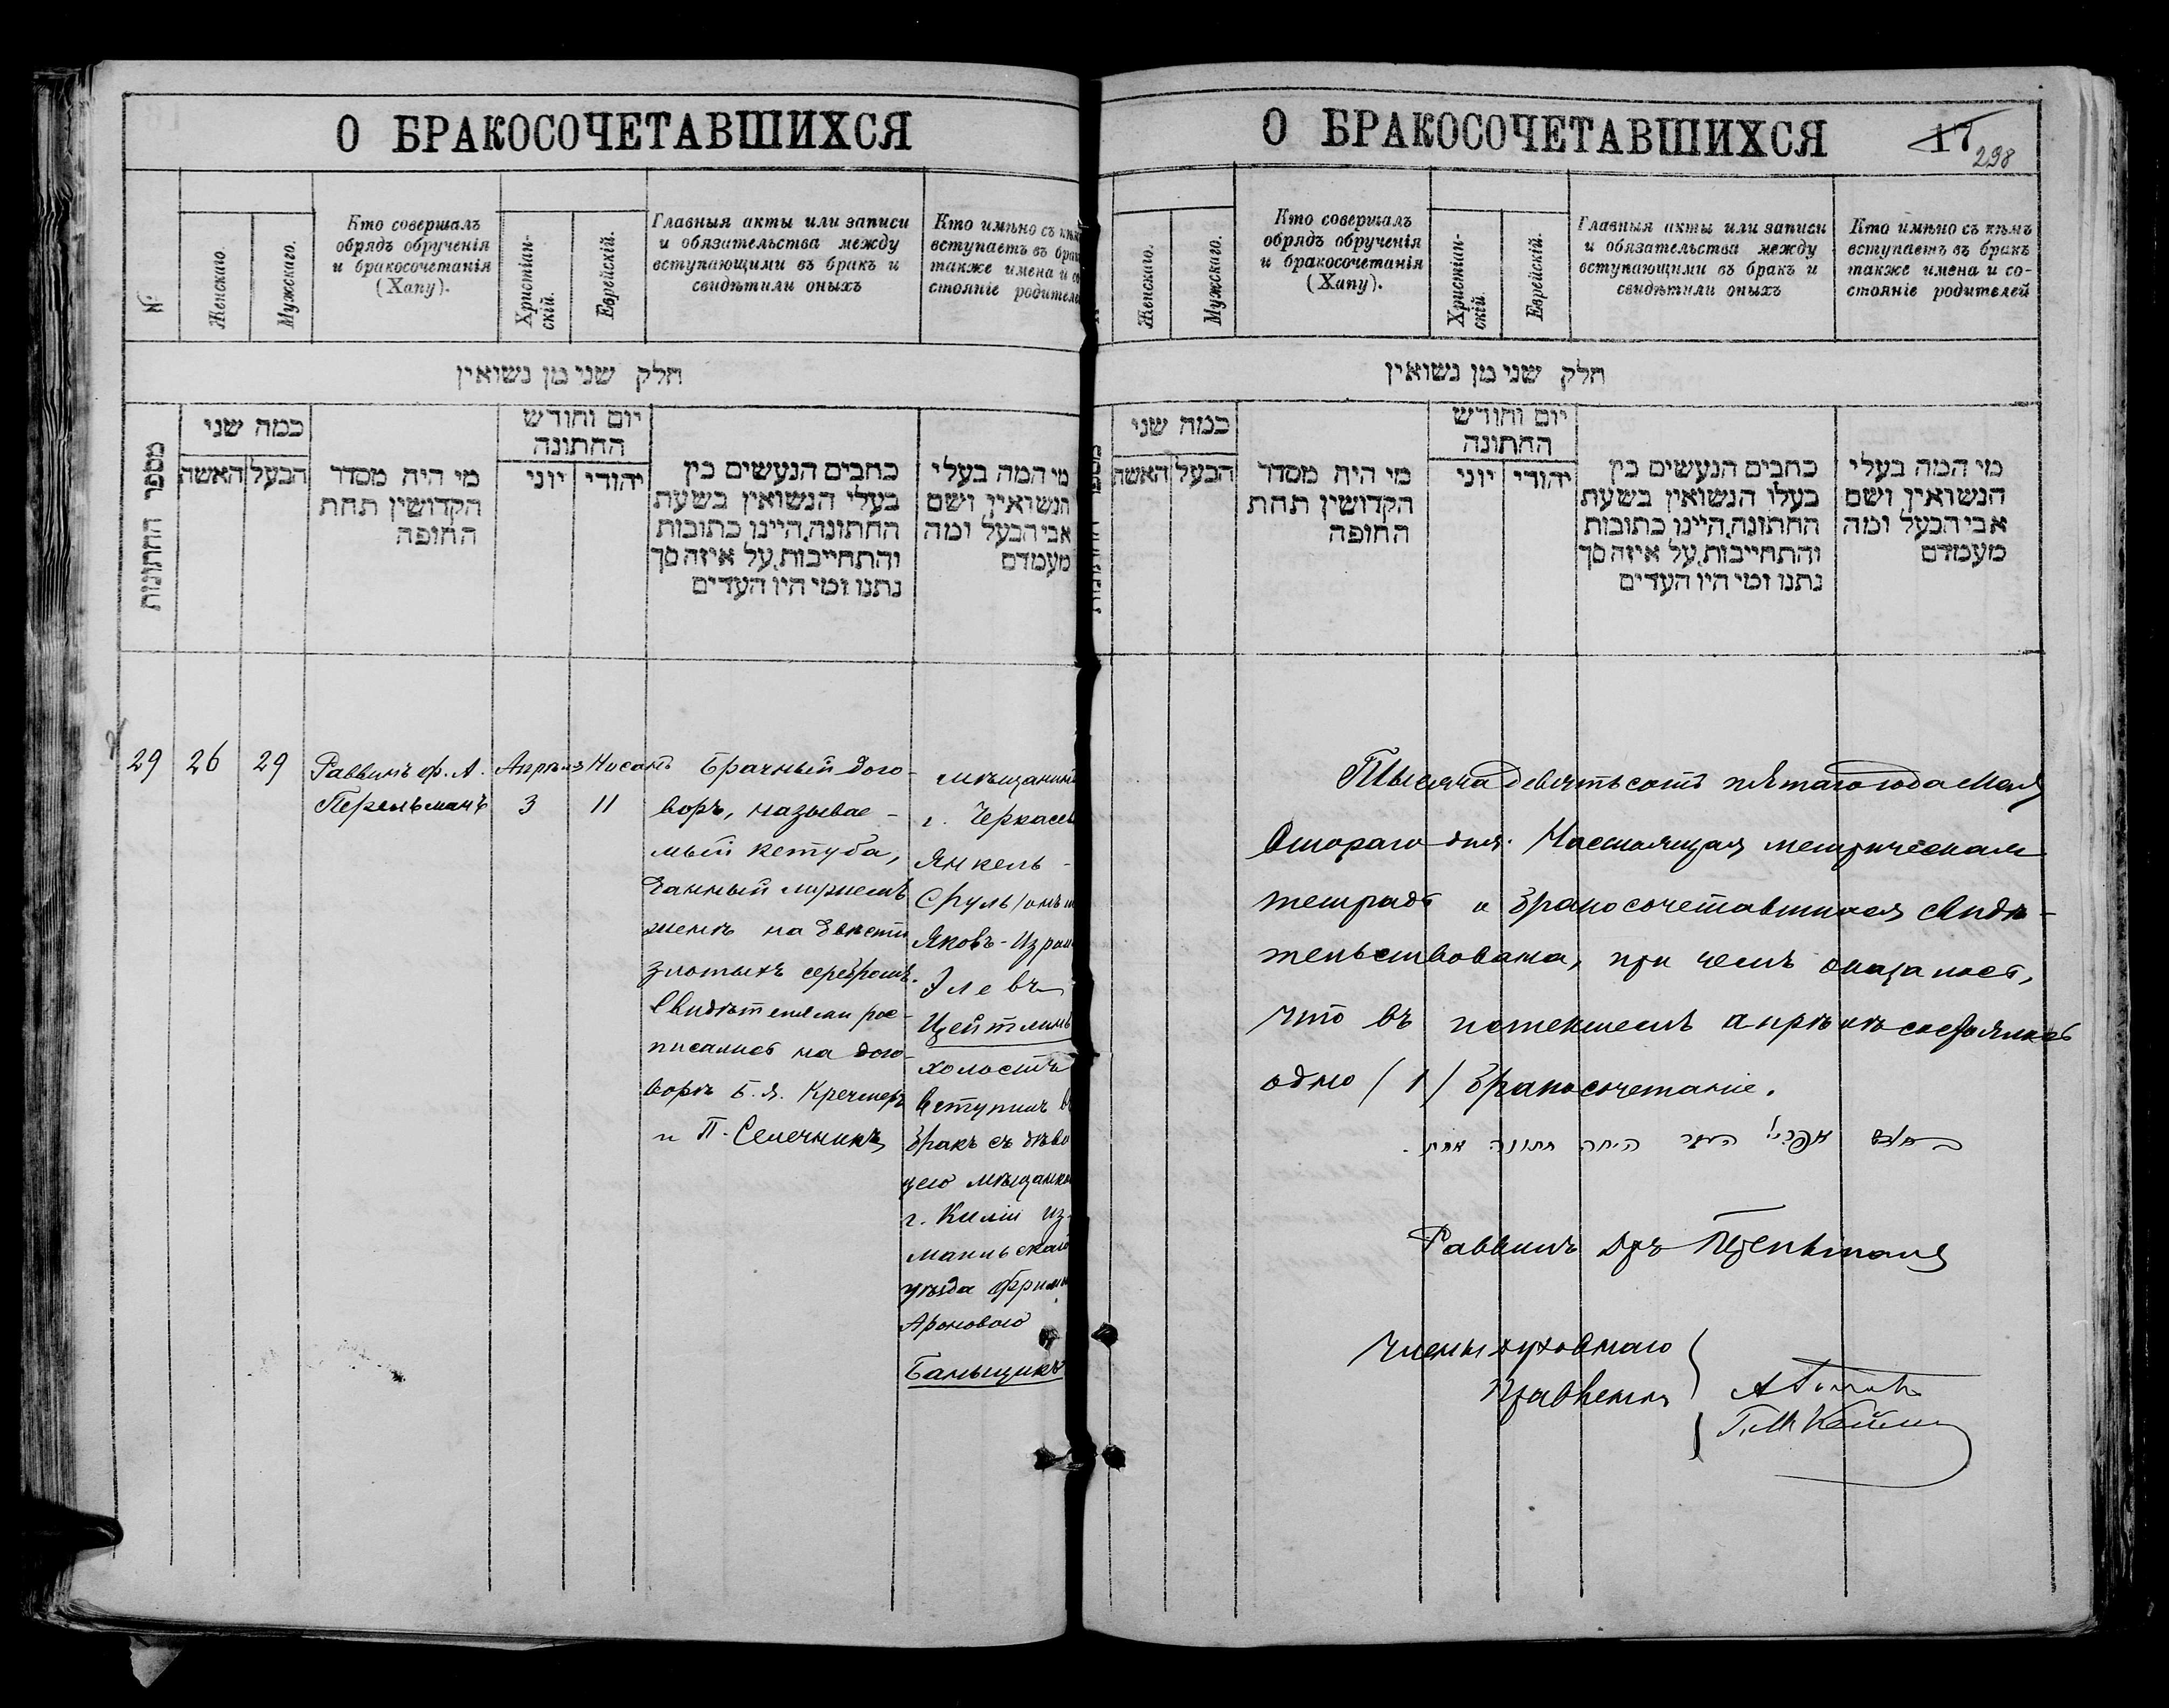 О БРАКОСОЧЕТАВШИХСЯ
№
Женскаго.
Мужскаго.
Кто совершалъ
обрядъ обрученія
и бракосочетанія
(Хапу).
Христіан-
скій.
Еврейскій.
Главныя акты или записи
и обязательства между
вступающими въ бракъ и
свидѣтили оныхъ
Кто имѣно съ кѣмъ
вступаетъ въ брак
также имена и со
стояніе родителе
חלק שני מן נשואין
מספר החתונות
כמה שני
האשה
הבעל
מי היה מסדר
הקדושין תחת
החופה
יום וחודש
החתונה
יוני
יהודי
כתבים הנעשים בין
בעלי הנשואין בשעת
החתונה, היינו כתובות
והתחייבות, על איזה סך
נתנו ומי היו העדים
מי המה בעלי
הנשואין ושם
אבי הבעל ומה
מעמדם
29
26
29
Раввинъ Ф. А.
Перельманъ
Апрѣля
3
Нисанъ
11
Брачный дого-
воръ, называе-
мый кетуба,
данный мужемъ
женѣ на двѣсти
злотыхъ серебромъ.
Свидѣтелями рос-
писались на дого-
ворѣ Б. Я. Кречмеръ
и П. Семечникъ
мѣщанинъ
г. Черкассъ
Янкель-
Сруль / онъ
Яковъ-Изра
Элевъ
Цейтлинъ
холостъ
вступилъ въ
бракъ съ дѣви
цею мѣщанко
г. Киліи Из-
маильскаго
уѣзда
Ароновою
Банщикъ
О БРАКОСОЧЕТАВШИХСЯ
17
298
Женскаго.
Мужскаго.
Кто совершалъ
обрядъ обрученія
и бракосочетанія
(Хапу).
Христіан-
скій.
Еврейскій.
Главныя акты или записи
и обязательства между
вступающими въ бракъ и
свидѣтили оныхъ
Кто имѣно съ кѣмъ
вступаетъ въ бракъ
также имена и со-
стояніе родителей
חלק שני מן נשואין
כמה שני
האשה
הבעל
מי היה מסדר
הקדושין תחת
החופה
יום וחודש
החתונה
יוני
יהודי
כתבים הנעשים בין
בעלי הנשואין בשעת
החתונה, היינו כתובות
והתחייבות, על איזה סך
נתנו ומי היו העדים
מי המה בעלי
הנשואין ושם
אבי הבעל ומה
מעמדם
Тысяча девятьсотъ пятаго года Мая
Втораго дня. Настоящая метрическая
тетрадь о бракосочетавшихся свидѣ-
тельствована, при чемъ оказалось,
что въ истекшемъ апрѣлѣ состоялось
одно (1) бракосочетаніе.
בחודש אפריל העבר היתה חתונה אחת.
Раввинъ Дръ
Члены духовнаго
Правленія